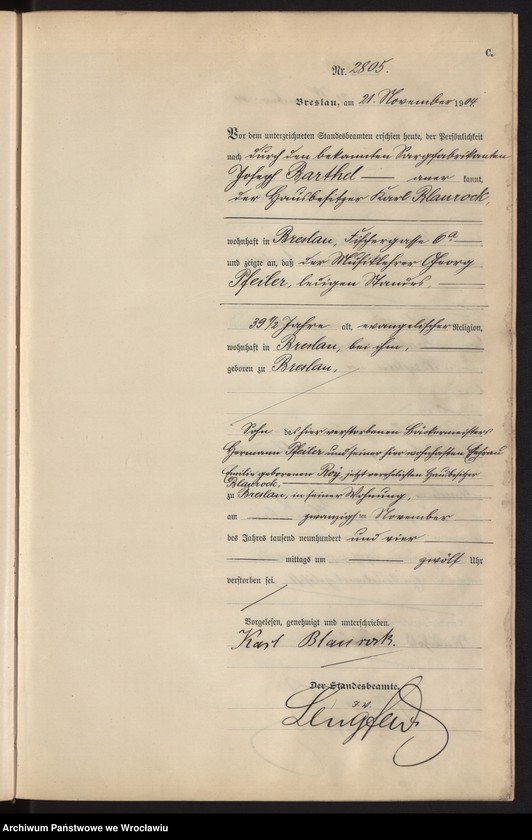 C.
Nr. 2805.
Breslau, am 21. November 1904
Vor dem unterzeichneten Standesbeamten erschien heute, der Persönlichkeit
nach durch den bekannten Sargfabrikanten
Joseph Barthel aner kannt,
der Hausbesitzer Karl Blaurock,
wohnhaft in Breslau, Fischergasse 6a
und zeigte an, daß der Musiklehrer Georg
Pfeiler, ledigen Standes,
39 1/2 Jahre alt, evangelischer Religion,
wohnhaft in Breslau, bei ihm,
geboren zu Breslau,
Sohn des hier verstorbenen Bäckermeisters
Hermann Pfeiler und seiner hier wohnhaften Ehefrau
Emilie geborenen Roy, jetzt verehelichten Hausbesitzer
Blaurock,
zu Breslau, in seiner Wohnung,
am zwanzigsten November
des Jahres tausend neunhundert und vier
mittags um zwölf Uhr
verstorben sei.
Vorgelesen, genehmigt und unterschrieben.
Karl Blaurock.
Der Standesbeamte.
I. V.
Archiwum Państwowe we Wrocławiu